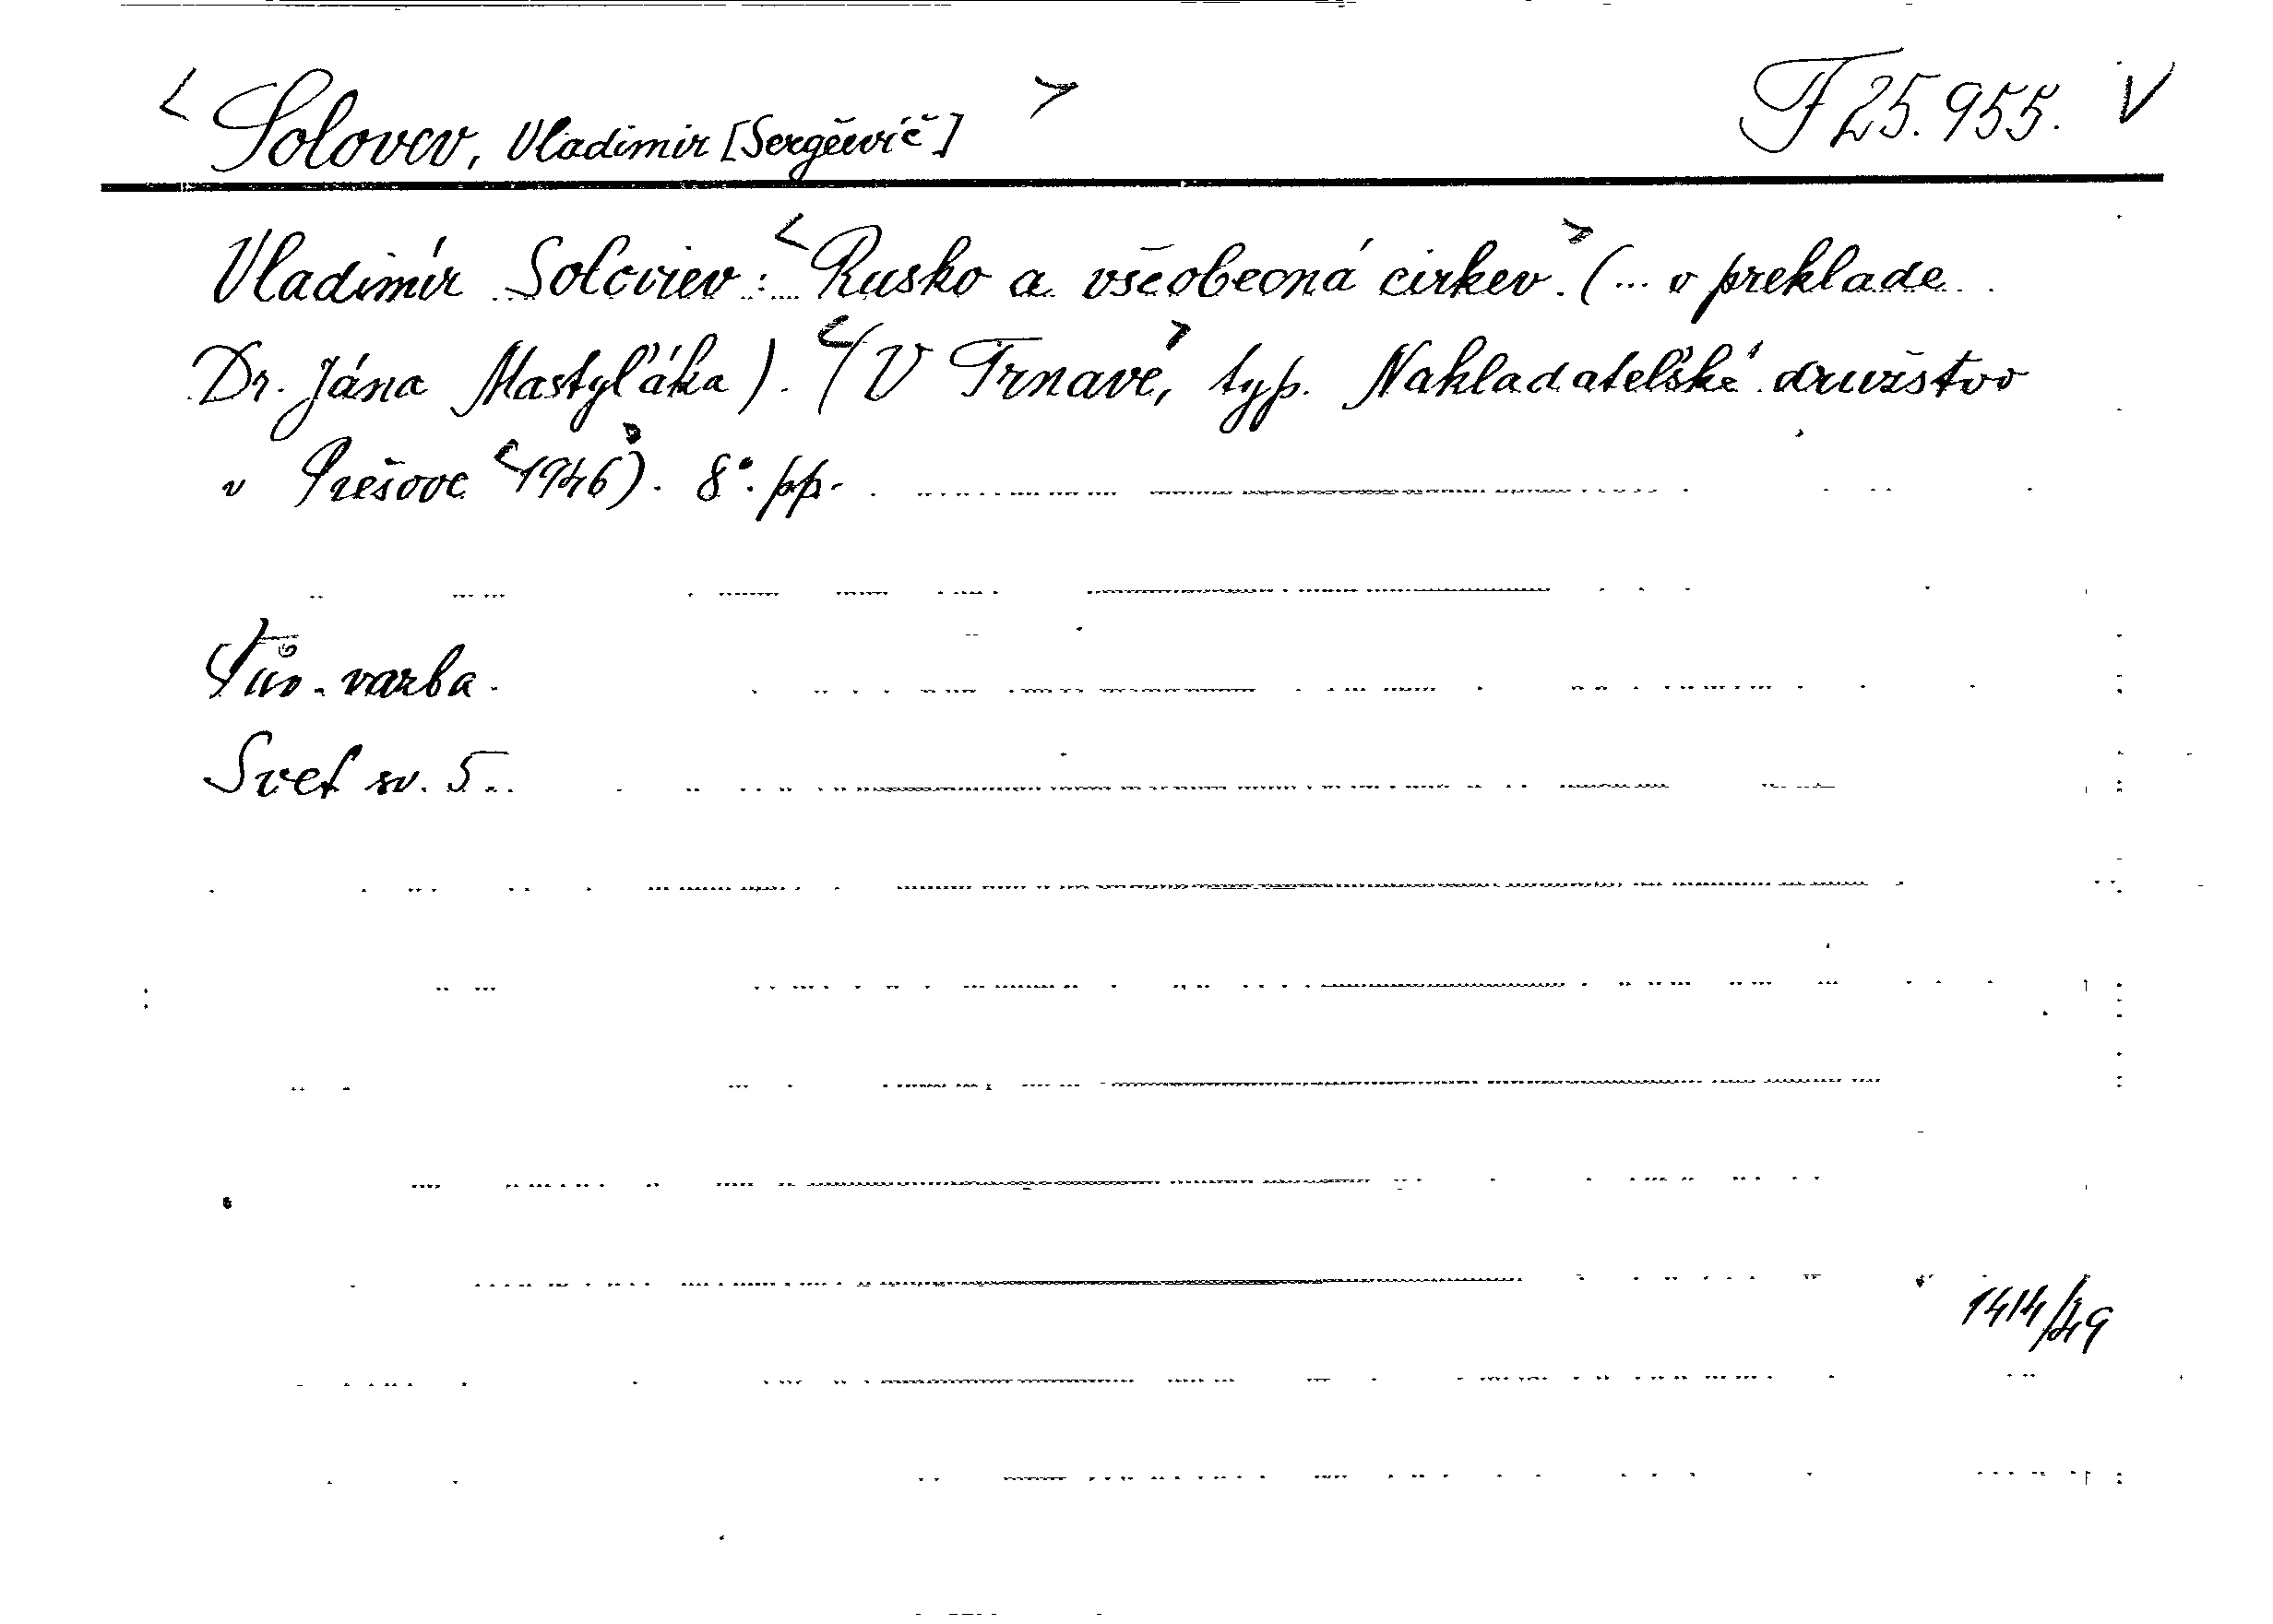 < Solovev, Vladimir [Sergěevič] > F 25.955. V
Vladimír Soloviev: <Rusko a všeobecná cirkev.> (... v preklade
Dr. Jána Mastyľáka). <(V Trnave>, typ. Nakladateľské družstvo
v Prešove <1946>). 8°. pp.
Pův. vazba.
Svet sv. 5.
1414/49